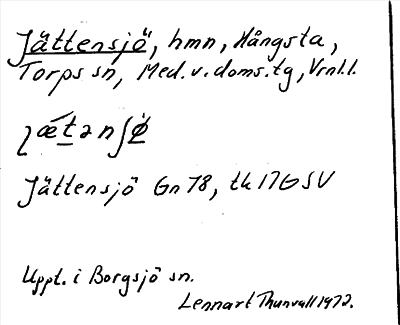 Jättensjö, hmn, Hångsta,
Torps sn, Med.v.doms.tg, Vrnl.l.
Jättensjö Gn 78, tk 17G SV
Uppt. i Borgsjö sn.
Lennart Thunvall 1972.